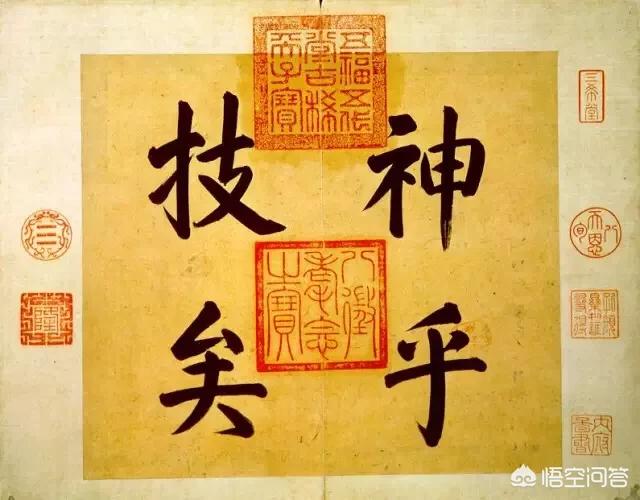 神乎
技矣
五福五代
堂古稀
天子寶
八徵
耄念
之寶
三希堂
悟空问答